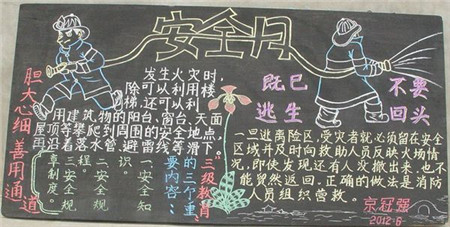 安全月
胆大心细 善用通道
发生火灾时,
除可利用楼
梯,还可以利
用建筑物的阳台、窗台、天面
屋顶等攀爬到周围的安全地点
再沿着落水管避雷线等滑下
三级教育
的三个重
要内容:
一安全知
识。
二安全规
程。
三安全规
章制度。
既已
逃生
不要
回头
一旦逃离险区,受灾者就必须留在安全
区域并及时向救助人员反映火场情
况,即使发现还有人没撤出来,也不
能贸然返回。正确的做法是消防
人员组织营救。
京冠强
2012.6